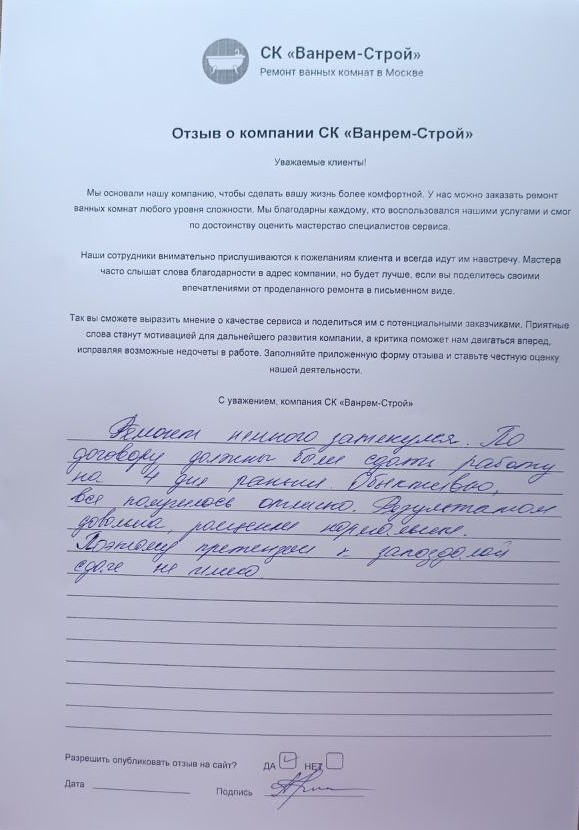 СК «Ванрем-Строй»
Ремонт ванных комнат в Москве
Отзыв о компании СК «Ванрем-Строй»
Уважаемые клиенты!
Мы основали нашу компанию, чтобы сделать вашу жизнь более комфортной. У нас можно заказать ремонт
ванных комнат любого уровня сложности. Мы благодарны каждому, кто воспользовался нашими услугами и смог
по достоинству оценить мастерство специалистов сервиса.
Наши сотрудники внимательно прислушиваются к пожеланиям клиента и всегда идут им навстречу. Мастера
часто слышат слова благодарности в адрес компании, но будет лучше, если вы поделитесь своими
впечатлениями от проделанного ремонта в письменном виде.
Так вы сможете выразить мнение о качестве сервиса и поделиться им с потенциальными заказчиками. Приятные
слова станут мотивацией для дальнейшего развития компании, а критика поможет нам двигаться вперед,
исправляя возможные недочеты в работе. Заполняйте приложенную форму отзыва и ставьте честную оценку
нашей деятельности.
С уважением, компания СК «Ванрем-Строй»
Ремонт немного затянулся. По
договору должны были сдать работу
на 4 дня раньше. Объективно,
все получилось отлично. Результатом
довольна, расценки нормальные.
Поэтому претензий к запоздалой
сдаче не имею.
Разрешить опубликовать отзыв на сайт? ДА НЕТ
Дата Подпись